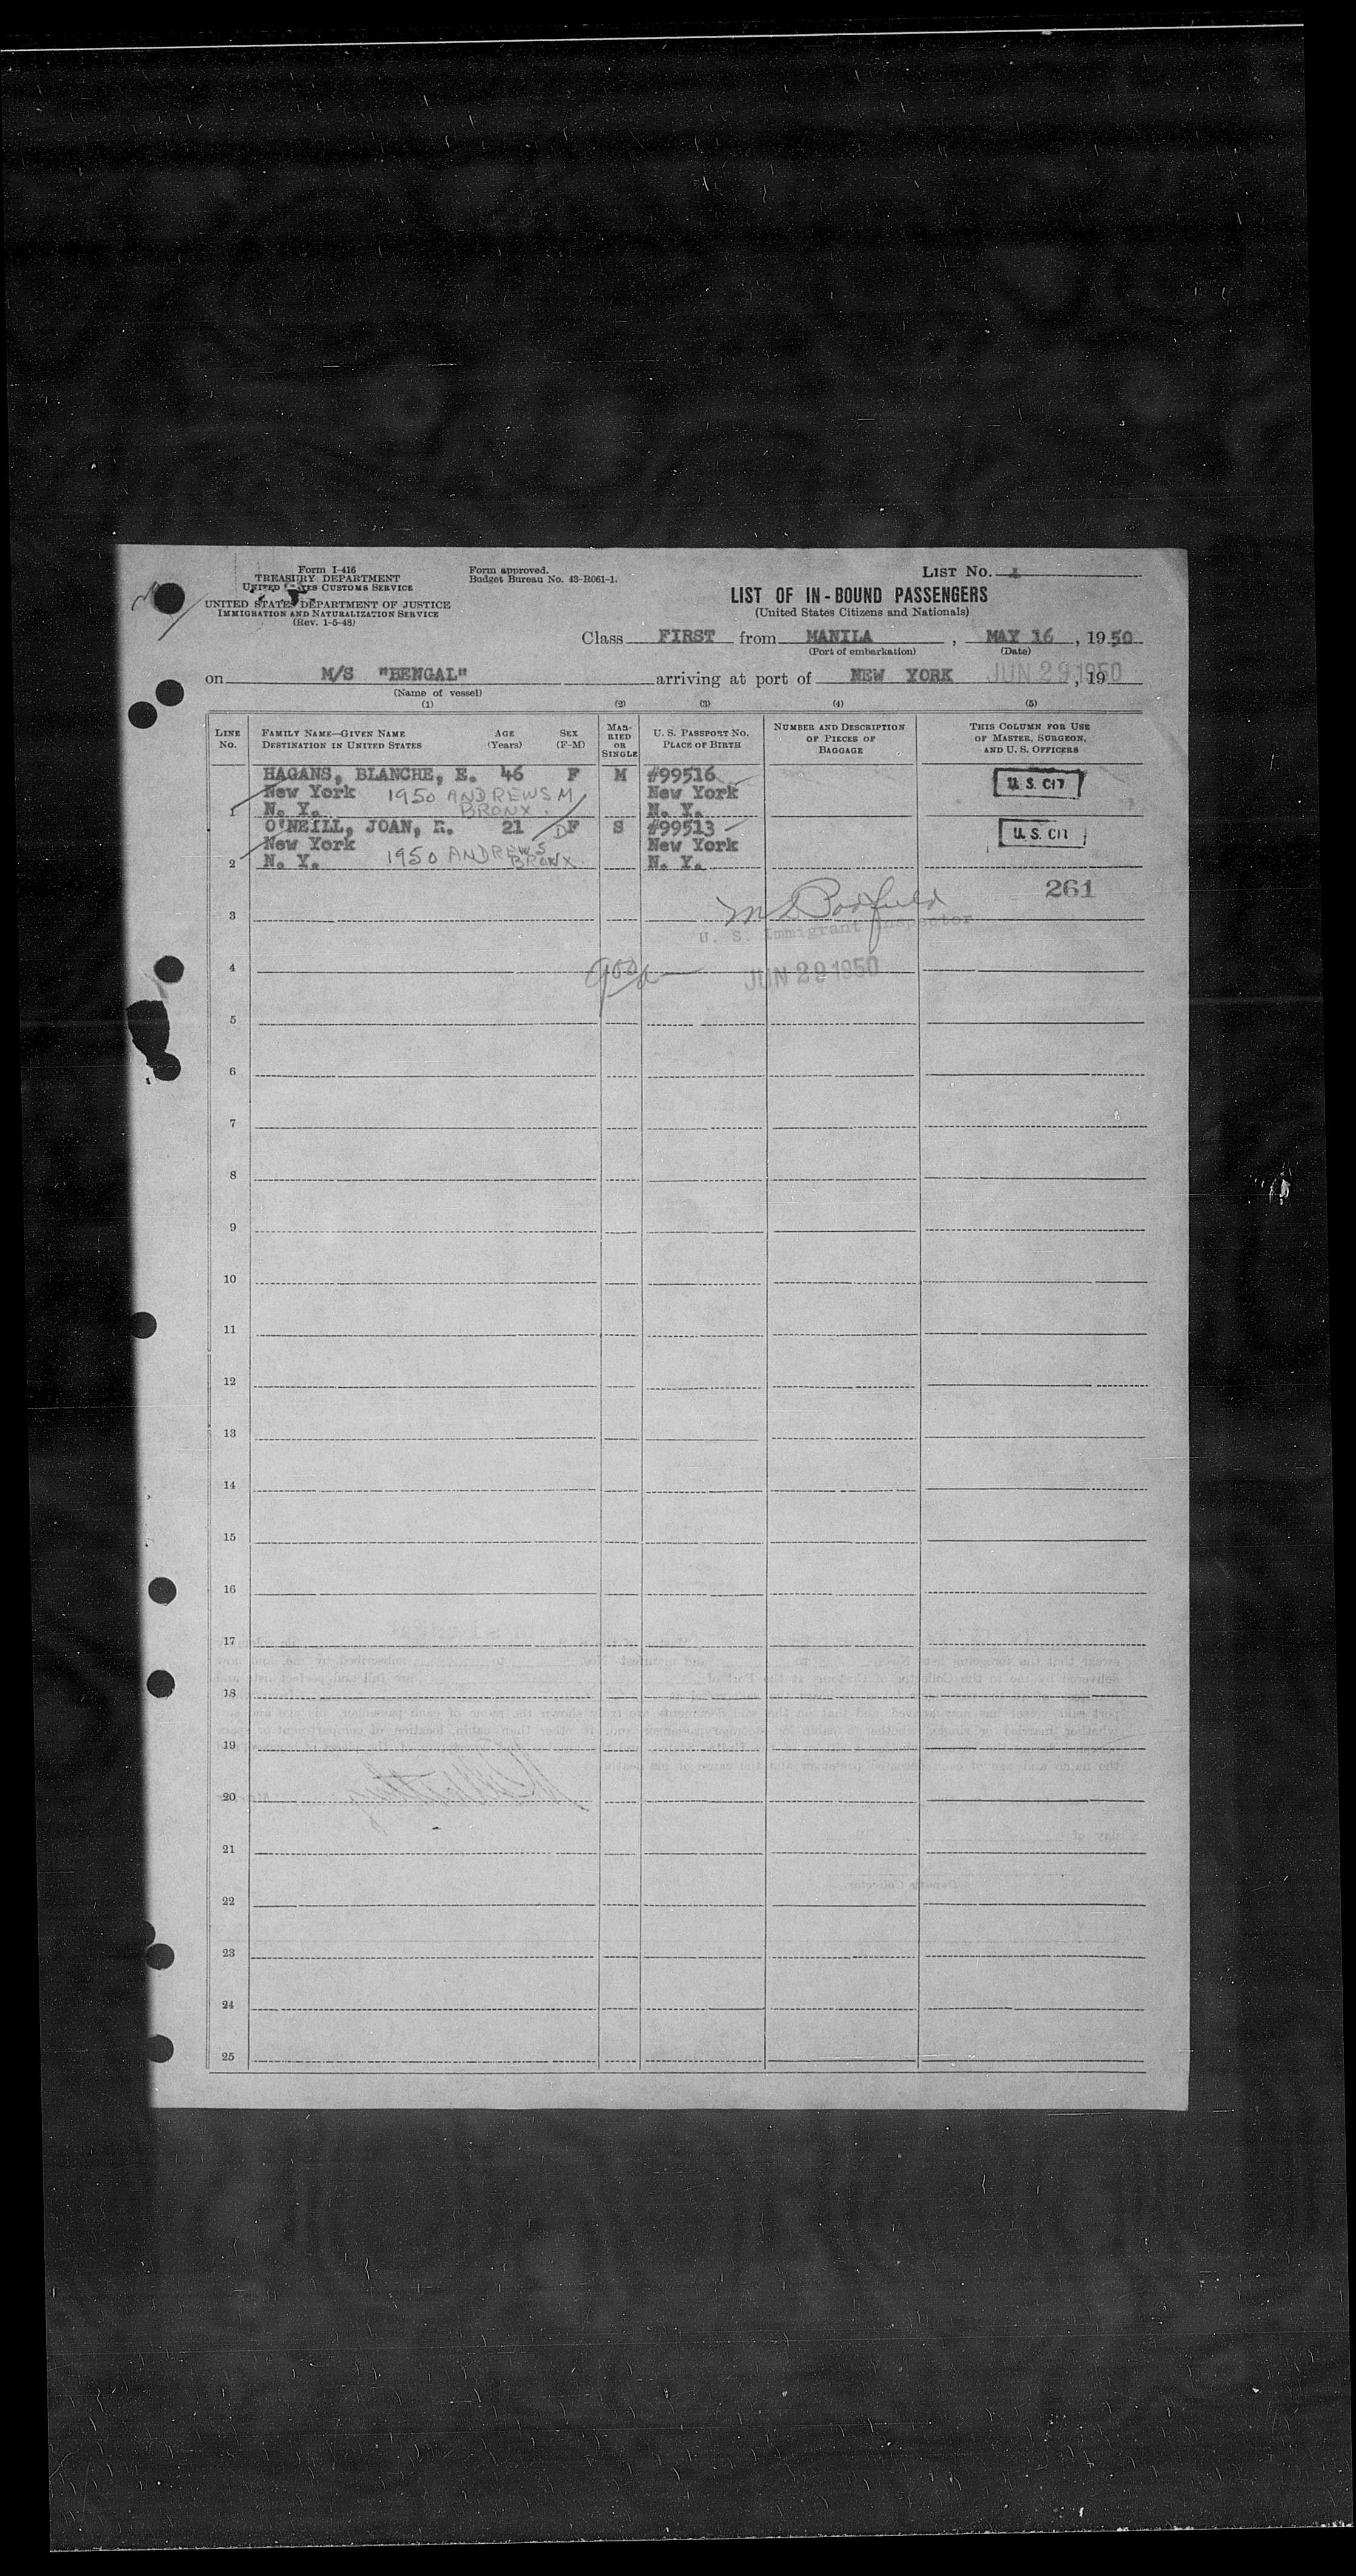 Form I-416
TREASURY DEPARTMENT
UNITED STATES CUSTOMS SERVICE
UNITED STATES DEPARTMENT OF JUSTICE
IMMIGRATION AND NATURALIZATION SERVICE
(Rev. 1-5-48)
Form approved.
Budget Bureau No. 43-R061-1.
LIST NO. 1
LIST OF IN-BOUND PASSENGERS
(United States Citizens and Nationals)
Class FIRST from MANILA, MAY 16, 1950
(Port of embarkation) (Date)
on M/S "BENGAL" arriving at port of NEW YORK JUN 29 1950, 19
(Name of vessel)
(1) (2) (3) (4) (5)
LINE NO.
FAMILY NAME—GIVEN NAME
DESTINATION IN UNITED STATES
AGE (Years)
SEX (F-M)
MARRIED OR SINGLE
U. S. PASSPORT NO.
PLACE OF BIRTH
NUMBER AND DESCRIPTION OF PIECES OF BAGGAGE
THIS COLUMN FOR USE OF MASTER, SURGEON, AND U. S. OFFICERS
HAGANS, BLANCHE, E. 46 F M #99516 U. S. CIT
New York 1950 ANDREWS M New York
1 N. Y. BRONX. N. Y.
O'NEILL, JOAN, R. 21 D F S #99513 U. S. CIT
New York 1950 ANDREWS New York
2 N. Y. BRONX. N. Y.
261
3
M L Padfield
U. S. Immigrant Inspector
4 JUN 29 1950
5
6
7
8
9
10
11
12
13
14
15
16
17
18
19
20
21
22
23
24
25